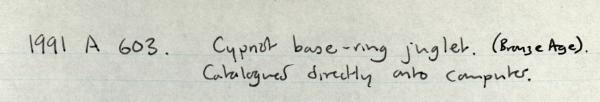 1991 A 603. Cypriot base-ring juglet. (Bronze Age).
Catalogued directly onto computer.